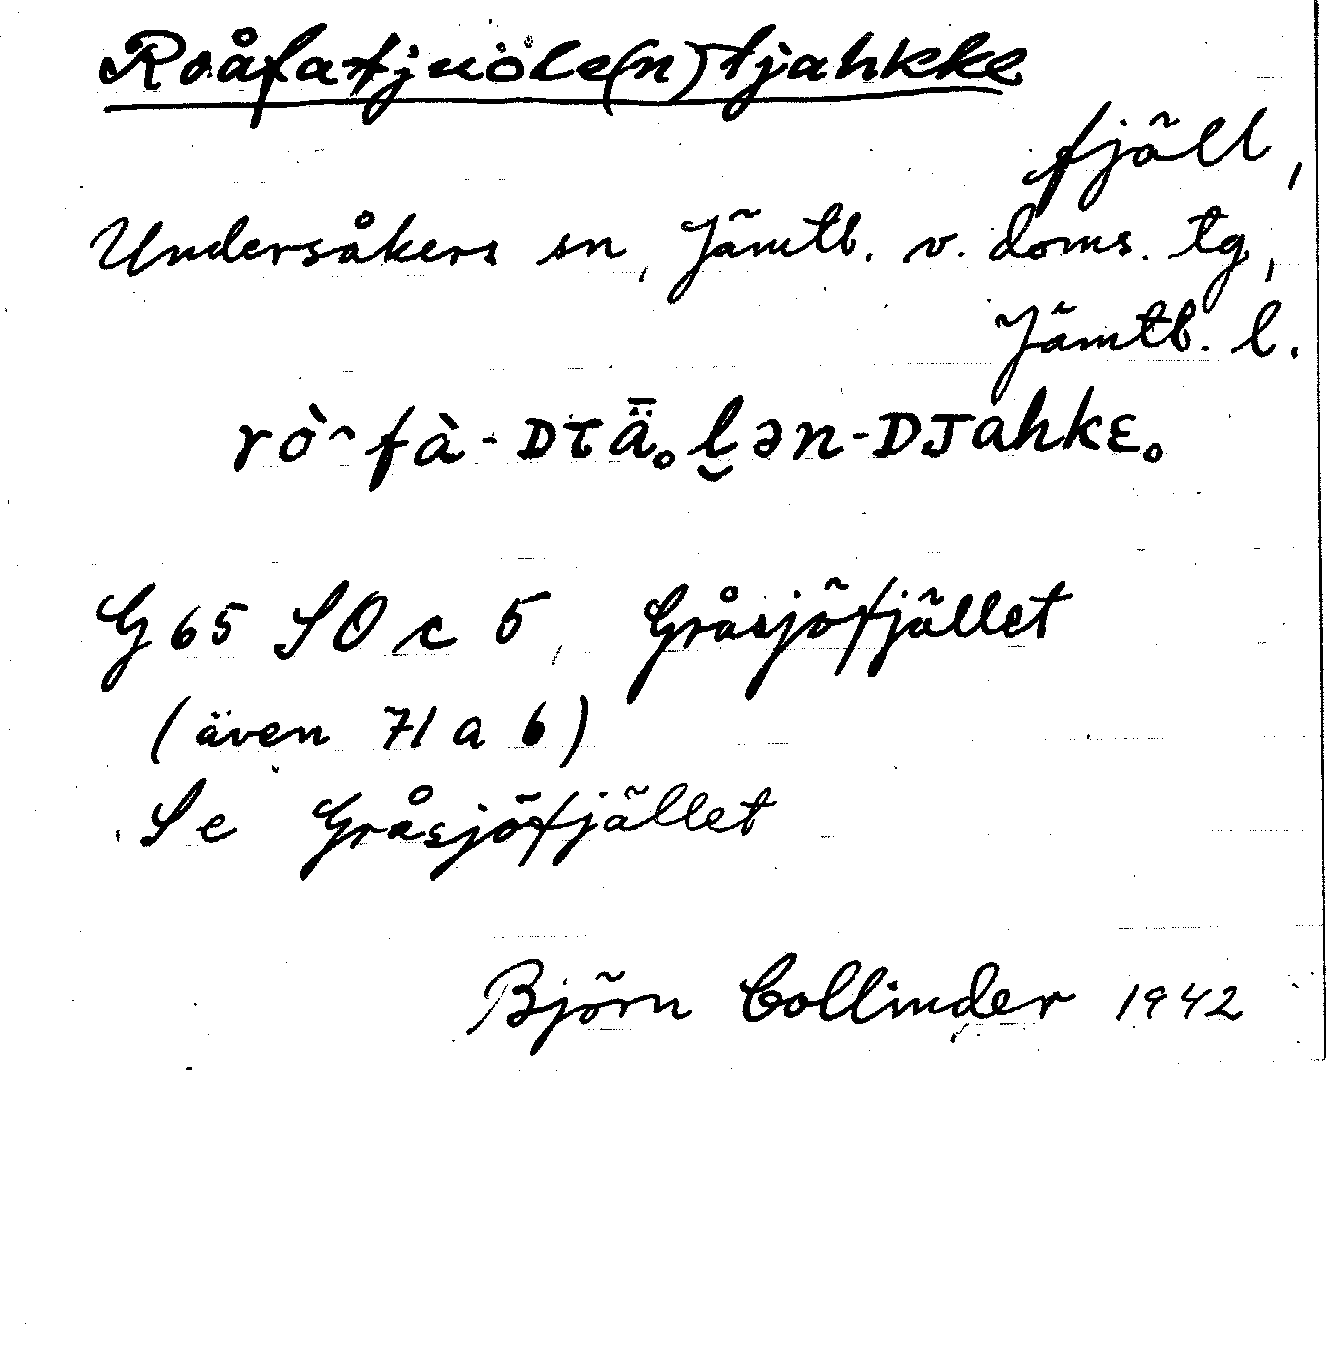 Roåfatjuöle(n)tjahkke
fjäll,
Undersåkers sn, Jämtl. v. doms. tg,
Jämtl. l.
rò᷈fà-Dτǟ˳l̮ən-DJahkε˳
G 65 SO c 5, Gråsjöfjället
(även 71 a b)
Se Gråsjöfjället
Björn Collinder 1942